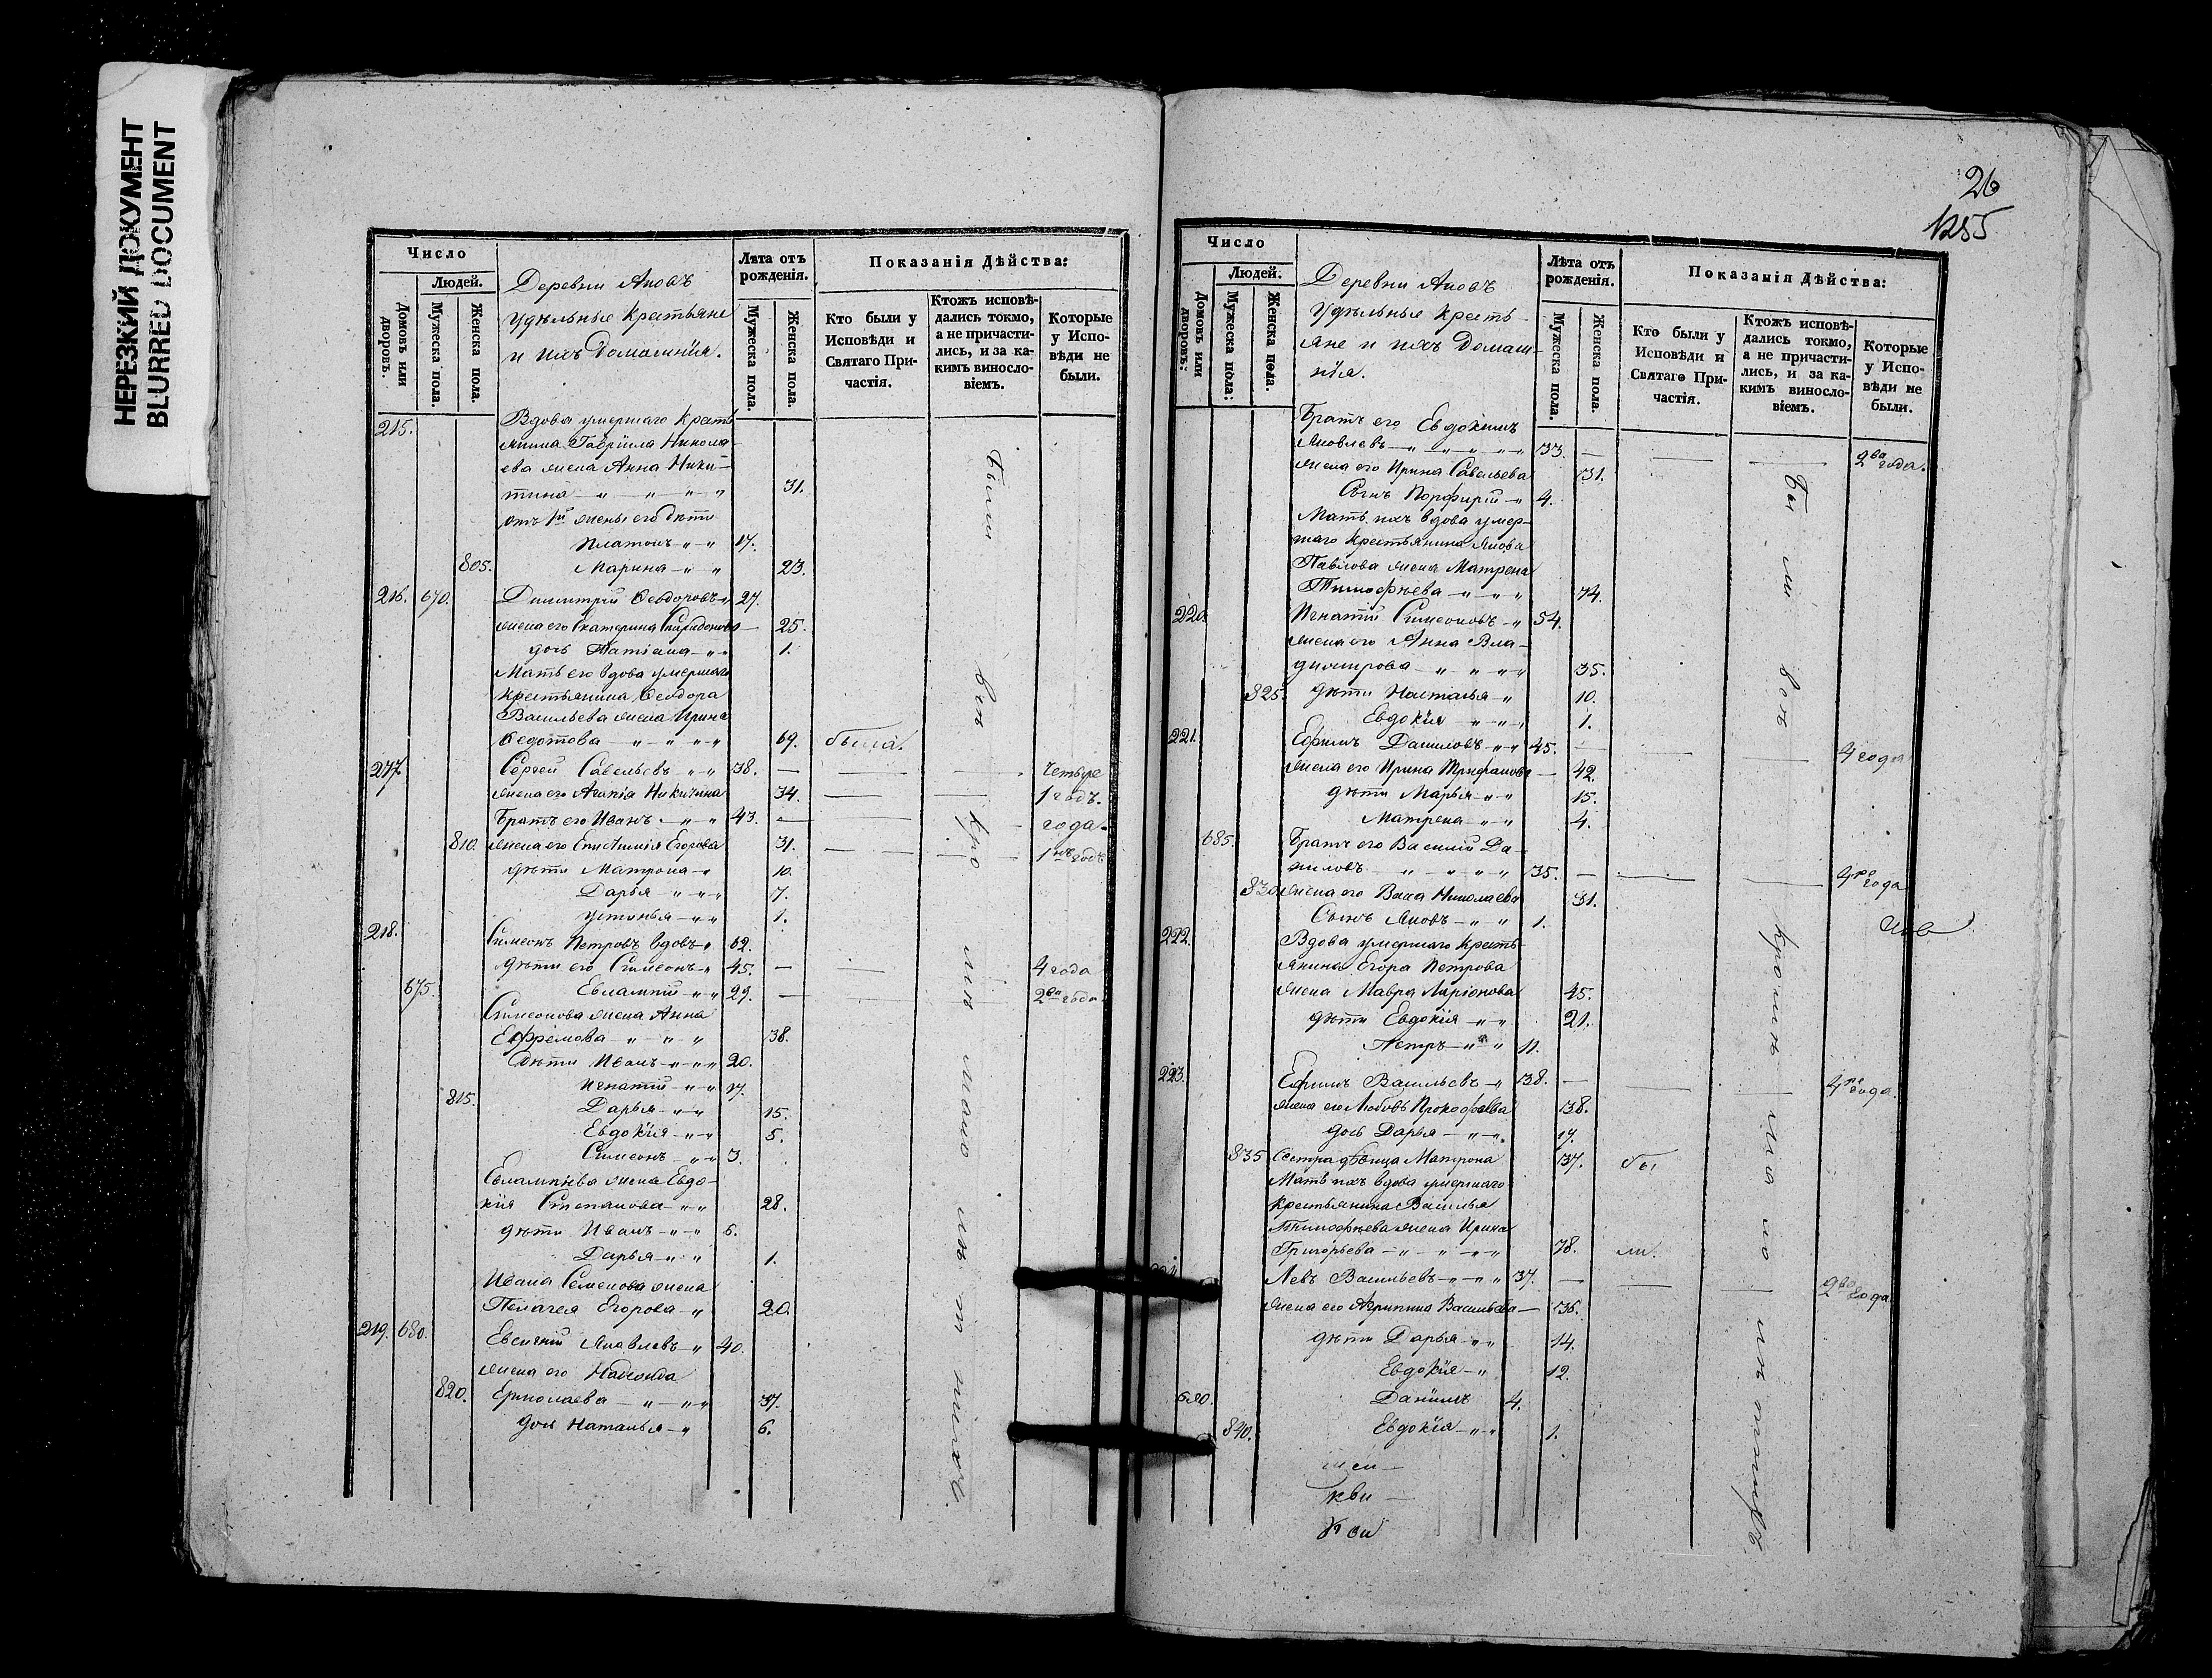 НЕРЕЗКИЙ ДОКУМЕНТ
BLURRED DOCUMENT
Число
Людей.
Домовъ или дворовъ.
Мужеска пола.
Женска пола.
Деревни
Удѣльные Крестьяне
и ихъ Домашнія.
Лѣта отъ рожденія.
Мужеска пола.
Женска пола.
Показанія Дѣйства:
Кто были у Исповѣди и Святаго Причастія.
Ктожъ исповѣдались токмо, а не причастились, и за какимъ винословіемъ.
Которые у Исповѣди не были.
215. Вдова умершаго Кресть
янина Гавріила Никола-
ева жена Анна Ники-
тина 31.
отъ 1й жены его дѣти
Платонъ 17.
805. Марина 23.
216. 670. Димитрій Ѳеодоровъ 27.
жена его Екатерина Спиридонова 25.
дочь Татіана 1.
Мать его вдова умершаго
крестьянина Ѳеодора
Васильева жена Ирина
Ѳедотова 69. была.
217. Сергей Савельевъ 38. четыре
жена его Агапія Никитина 34. 1 годъ.
Братъ его Иванъ 43. года.
810. жена его Епистимія Егорова 31. 1нъ годъ
дѣти Матрона 10.
Дарья 7.
Устинья 1.
218. Симеонъ Петровъ вдовъ 62.
Дѣти его Симеонъ 45. 4 года
675. Евлампій 29. 2ва года
Симеонова жена Анна
Ефремова 38.
Дѣти Иванъ 20.
Игнатій 17.
815. Дарья 15.
Евдокія 5.
Симеонъ 3.
Евлампіева жена Евдо-
кія Степанова 28.
дѣти Иванъ 6.
Дарья 1.
Ивана Семенова жена
Пелагея Егорова 20.
219. 680. Евсигній Яковлевъ 40.
жена его Надежда
820. Ермолаева 37.
дочь Наталья 6.
Были всѣ кро мѣ мало лѣт нихъ.
26
1255
Число
Людей.
Домовъ или дворовъ:
Мужеска пола:
Женска пола.
Деревни
Удѣльные Кресть-
яне и ихъ Домаш-
нія.
Лѣта отъ рожденія.
Мужеска пола.
Женска пола.
Показанія Дѣйства:
Кто были у Исповѣди и Святаго Причастія.
Ктожъ исповѣдались токмо, а не причастились, и за какимъ винословіемъ.
Которые у Исповѣди не были.
Братъ его Евдокимъ
Яковлевъ 33. 2ва года.
жена его Ирина Савельева 31.
Сынъ Порфирій 4.
Мать ихъ вдова умер-
шаго крестьянина Якова
Павлова жена Матрена
Тимофѣева 74.
220. Игнатій Симеоновъ 54.
жена его Анна Вла-
димирова 35.
825. дѣти Наталья 10.
Евдокія 1.
221. Ефимъ Даниловъ 45. 4 года
жена его Ирина Трифанова 42.
дѣти Марья 15.
Матрена 4.
685. Братъ его Василій Да-
ниловъ 35. 4ре года
830. жена его Васа Николаева 31.
Сынъ Яковъ 1.
222. Вдова умершаго Кресть-
янина Егора Петрова
жена Мавра Ларіонова 45.
дѣти Евдокія 21.
Петръ 11.
223. Ефимъ Васильевъ 38. 4ре года.
жена его Любовь Прокофьева 38.
дочь Дарья 17.
835 Сестра дѣвица Матрона 37. бы
Мать ихъ вдова умершаго
крестьянина Василья
Тимофѣева жена Ирина
Григорьева 78. ли.
Левъ Васильевъ 37. 2ва года
жена его Агрипина Васильева 36.
дѣти Дарья 14.
Евдокія 12.
690. Даніилъ 4.
840. Евдокія 1.
Бы ли всѣ кромѣ мало лѣтнихъ